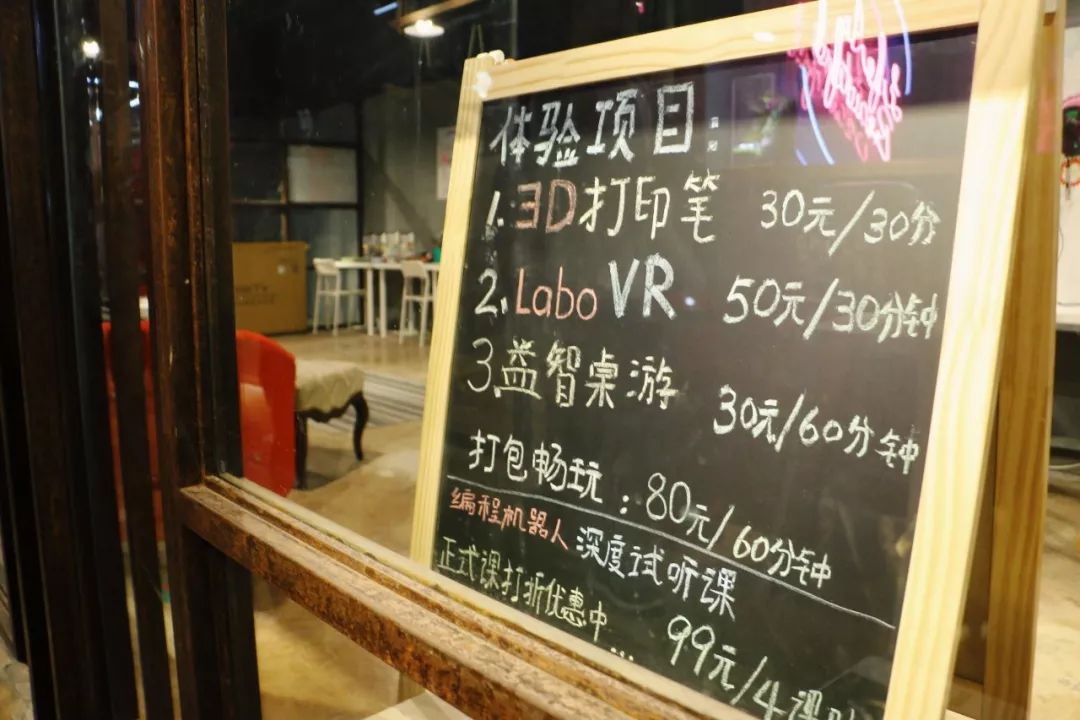 体验项目:
1. 3D打印笔 30元/30分
2. Labo VR 50元/30分钟
3. 益智桌游 30元/60分钟
打包畅玩:80元/60分钟
编程机器人 深度试听课
正式课打折优惠中... 99元/4课